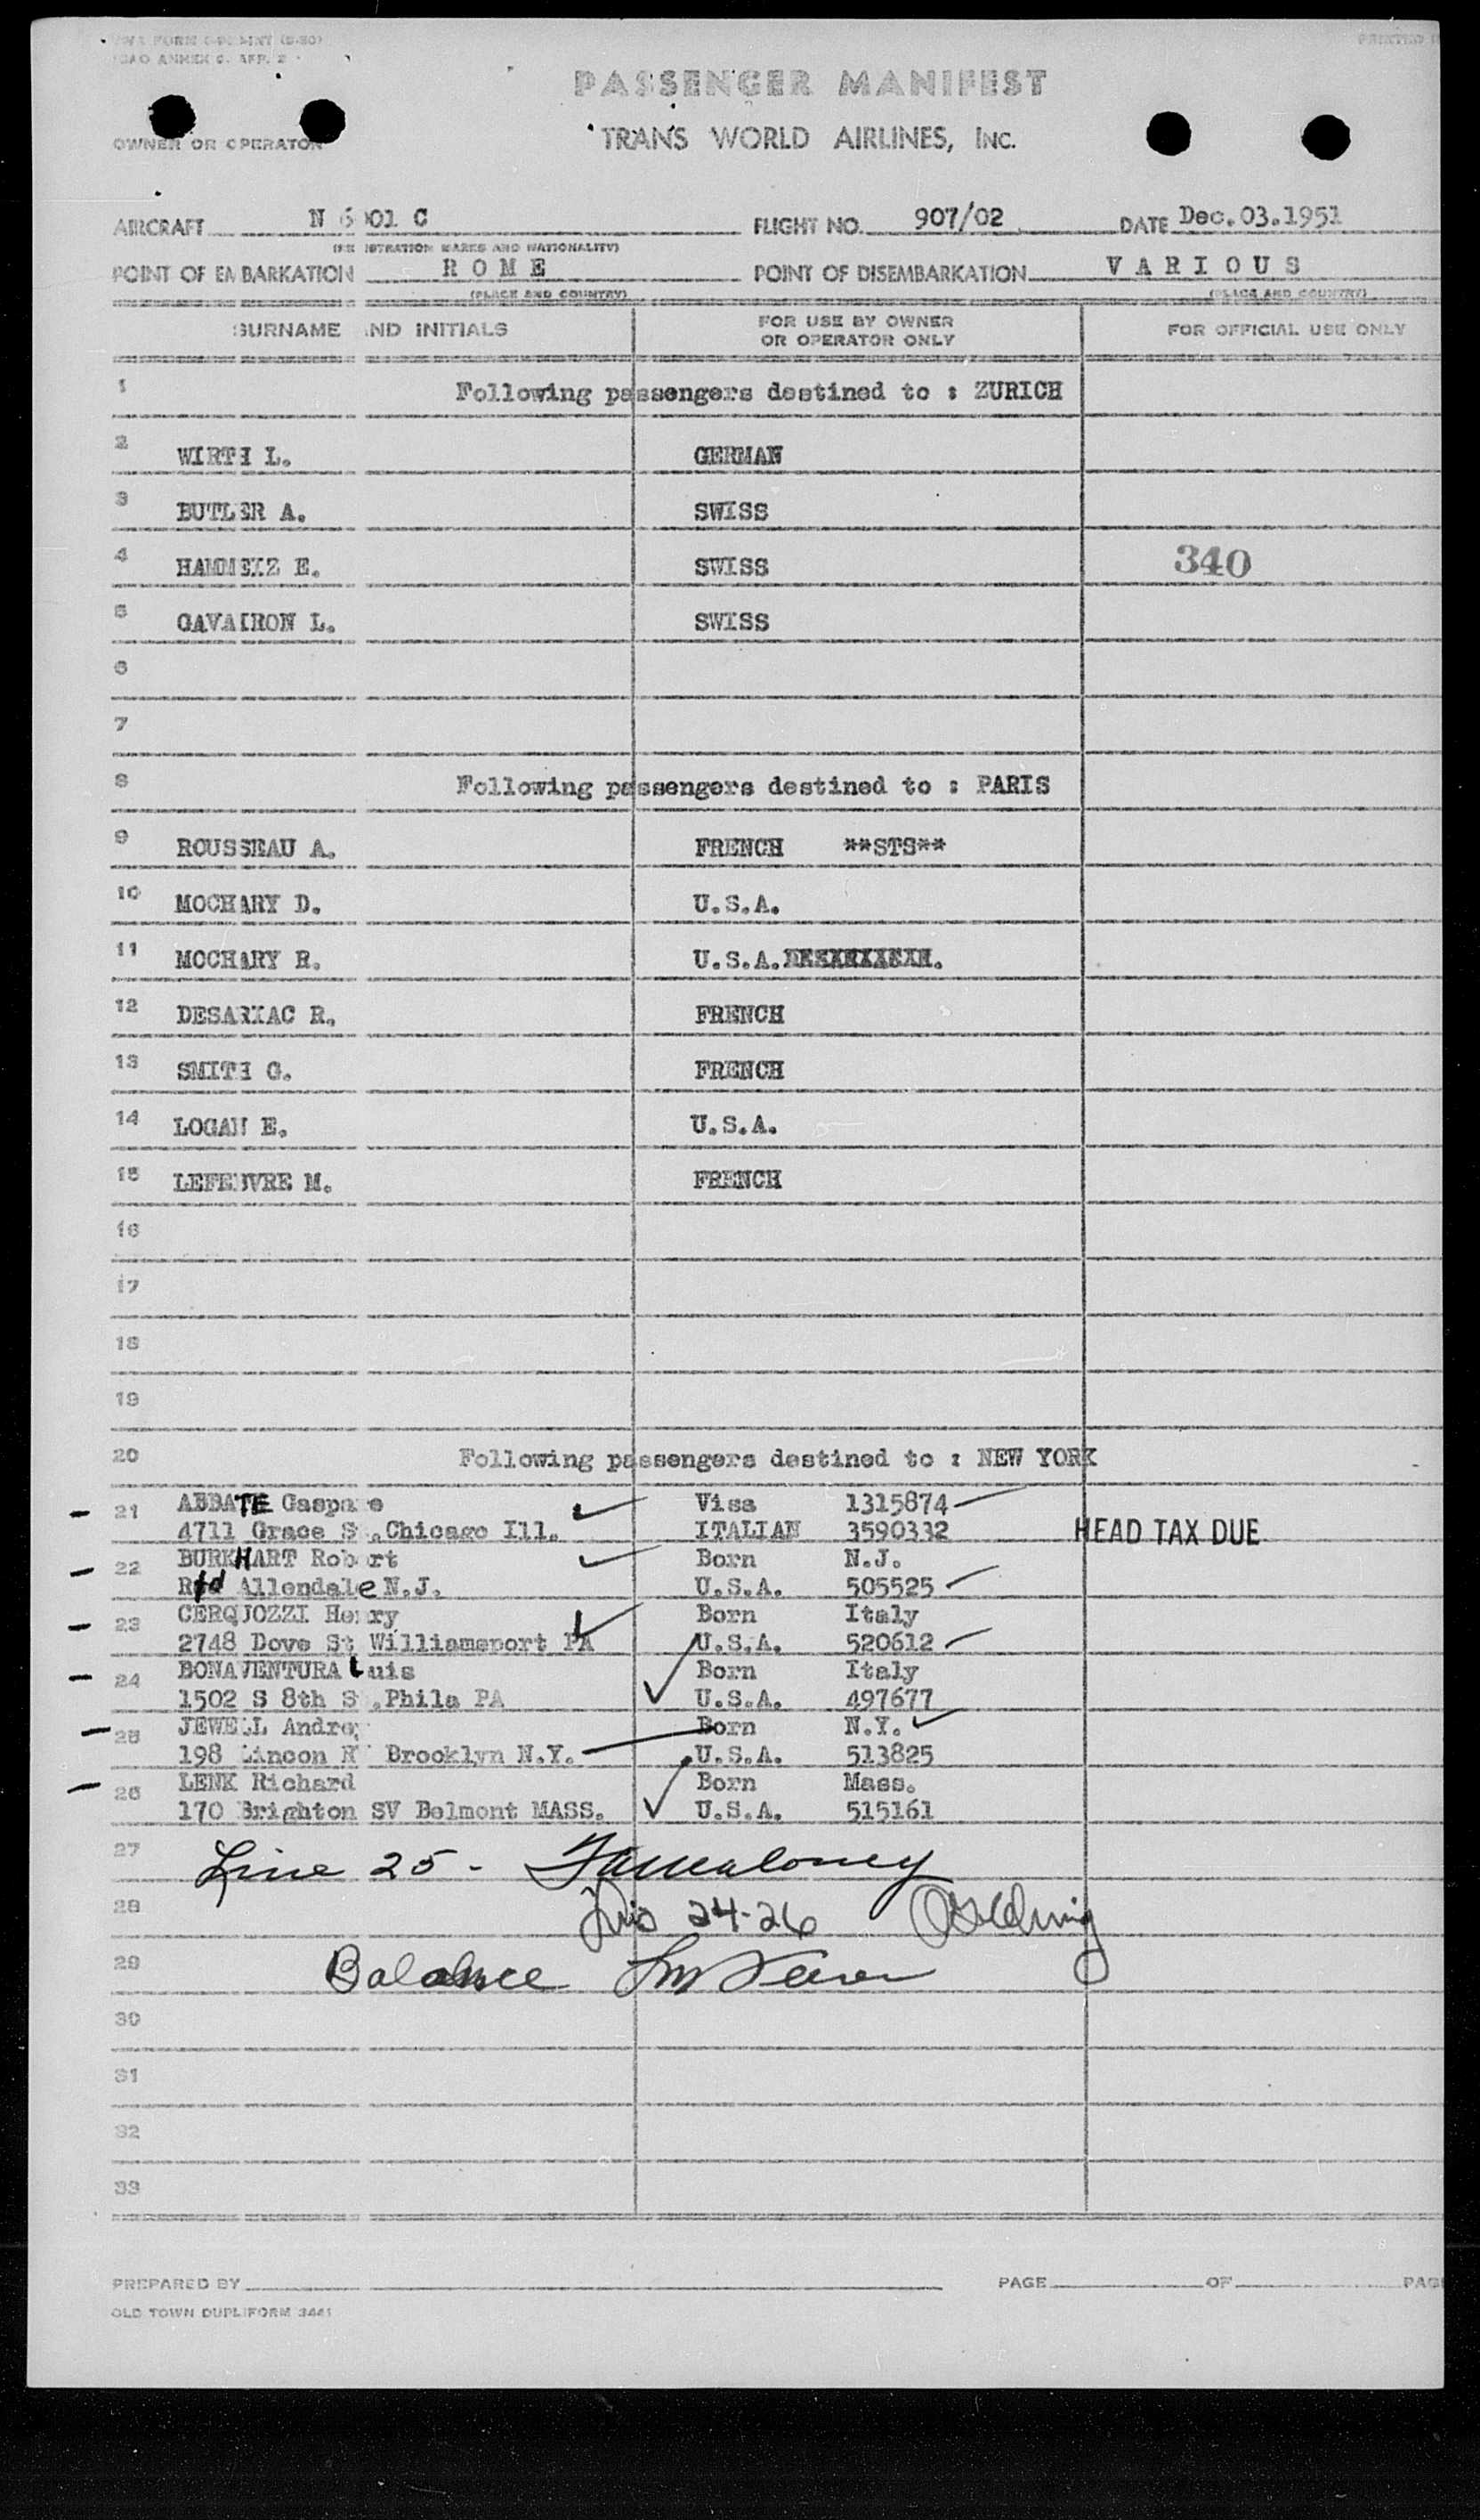 PASSENGER MANIFEST
OWNER OR OPERATOR
TRANS WORLD AIRLINES, INC.
AIRCRAFT N 6001 C FLIGHT NO. 907/02 DATE Dec.03.1951
(REGISTRATION MARKS AND NATIONALITY)
POINT OF EMBARKATION ROME POINT OF DISEMBARKATION VARIOUS
(PLACE AND COUNTRY) (PLACE AND COUNTRY)
SURNAME AND INITIALS FOR USE BY OWNER OR OPERATOR ONLY FOR OFFICIAL USE ONLY
1 Following passengers destined to : ZURICH
2 WIRTH L. GERMAN
3 BUTLER A. SWISS
4 E. SWISS 340
5 GAVAIRON L. SWISS
6
7
8 Following passengers destined to : PARIS
9 ROUSSEAU A. FRENCH **STS**
10 MOCHARY D. U.S.A.
11 MOCHARY R. U.S.A.
12 R. FRENCH
13 SMITH G. FRENCH
14 LOGAN E. U.S.A.
15 LEFEBVRE M. FRENCH
16
17
18
19
20 Following passengers destined to : NEW YORK
21 ABBATE Gaspare Visa 1315874
4711 Grace St.Chicago Ill. ITALIAN 3590332 HEAD TAX DUE
22 BURKHART Robert Born N.J.
Rfd Allendale N.J. U.S.A. 505525
23 CERQUOZZI Henry Born Italy
2748 Dove St Williamsport PA U.S.A. 520612
24 BONAVENTURA Luis Born Italy
1502 S 8th St.Phila PA U.S.A. 497677
25 JEWELL Andrey Born N.Y.
198 Lincon Brooklyn N.Y. U.S.A. 513825
26 LENK Richard Born Mass.
170 Brighton SV Belmont MASS. U.S.A. 515161
27 Line 25 -
28 24-26
29 Balance
30
31
32
33
PREPARED BY PAGE OF PAG
OLD TOWN DUPLIFORM 3441